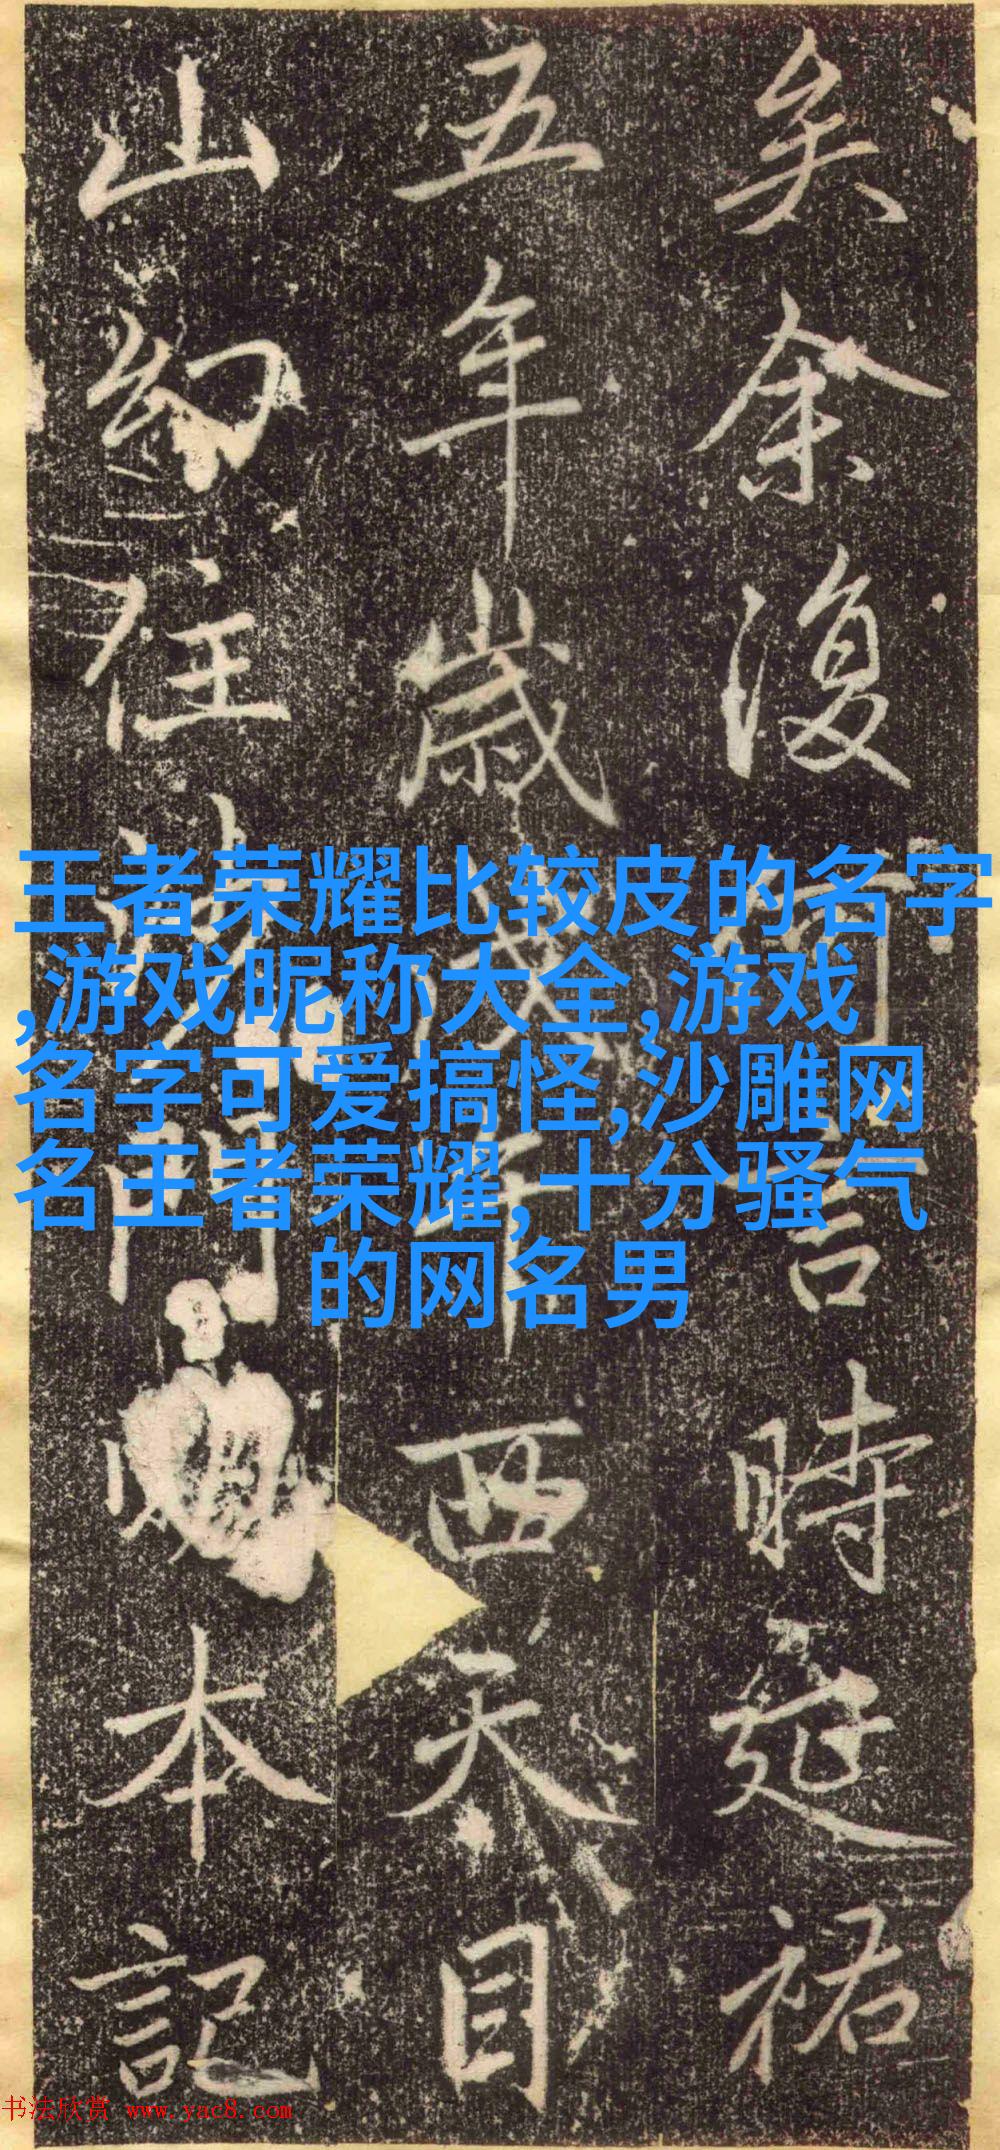 矣余復何言時延祐
五年歲戊午西天目
山幻住沙門明本記
王者荣耀比较皮的名字
,游戏昵称大全,游戏
名字可爱搞怪,沙雕网
名王者荣耀,十分骚气
的网名男
书法欣赏 www.yac8.com